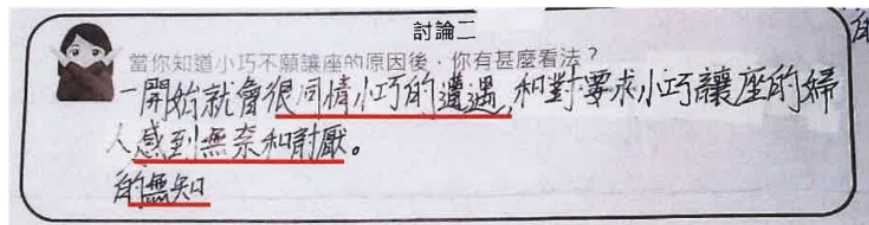 討論二
當你知道小巧不願讓座的原因後，你有甚麼看法？
一開始就會很同情小巧的遭遇，和對要求小巧讓座的婦
人感到無奈和討厭。
的無知